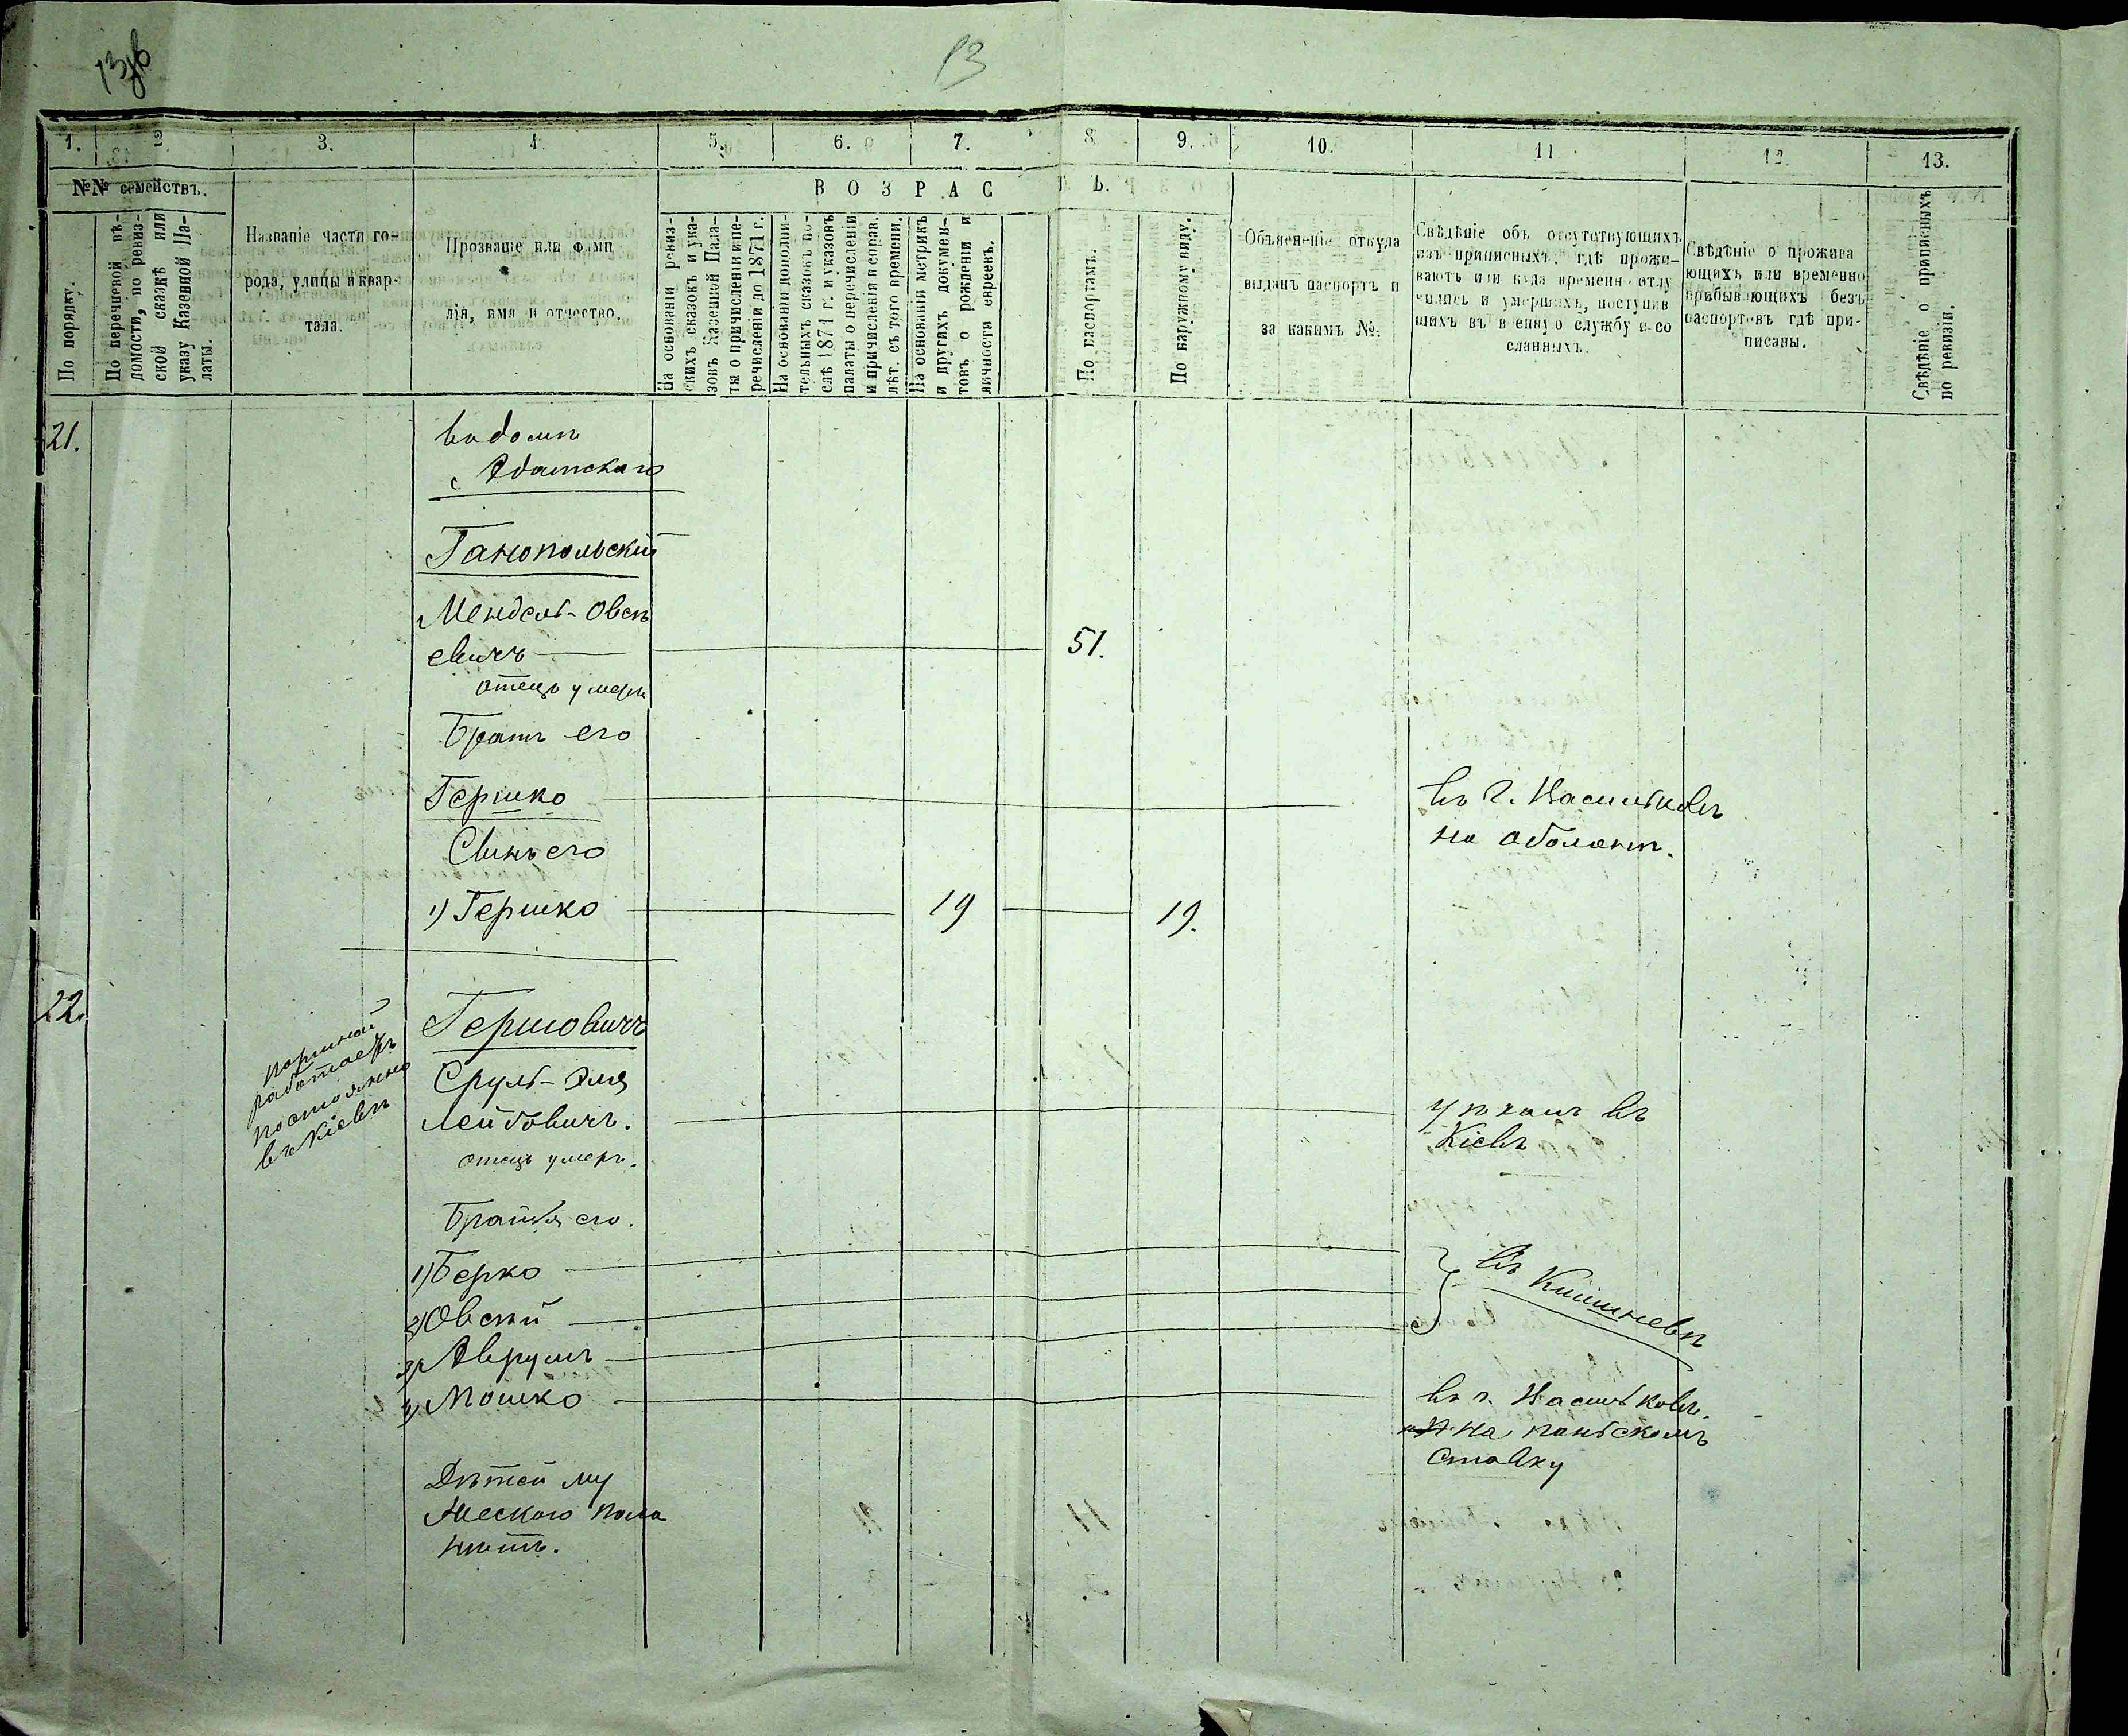 13
1.
2.
3.
4.
5.
6.
7.
8.
9.
10.
11
12.
13.
№№ семействъ.
ВОЗРАСТЪ.
По порядку.
По перечневой вѣ-
домости, по ревиз-
ской сказкѣ или
указу Казенной Па-
латы.
Названіе части го-
рода, улицы и квар-
тала.
Прозваніе или фами
лія, имя и отчество.
На основаніи ревиз-
скихъ сказокъ и ука-
зовъ Казенной Пала-
ты о причисленіи и пе-
речисленіи до 1874 г.
На основаніи дополни-
тельныхъ сказокъ по-
слѣ 1874 г. и указовъ
палаты о перечисленіи
и причисленіи и справ.
лѣт. съ того времени.
На основаніи метрикъ
и другихъ докумен-
товъ о рожденіи и
личности евреевъ.
По паспортамъ.
По наружному виду.
Объясненіе откуда
выданъ паспортъ и
за какимъ №.
Свѣдѣніе объ отсутствующихъ
изъ приписныхъ, гдѣ прожи-
ваютъ или куда временно отлу
чились и умершихъ, поступив
шихъ въ военную службу и со
сланныхъ.
Свѣдѣніе о прожива
ющихъ или временно
прибывающихъ безъ
паспортовъ гдѣ при-
писаны.
Свѣдѣніе о приписныхъ
по ревизіи.
21.
въ домѣ
Ганопольскій
Мендель-Овсѣ
евичъ 51.
отецъ умеръ
Братъ его
Гершко въ г. Васильковѣ
на оболони.
Сынъ его
1) Гершко 19 19.
22.
Гершовичъ
портной
работаетъ
постоянно
въ Кіевѣ
Сруль-Эля
Лейбовичъ. уѣхалъ въ
Кіевъ
отецъ умеръ.
Братья его.
1) Берко
2) Овсій
3) Аврумъ
въ Кишиневѣ
4) Мошко въ г. Васильковѣ.
на панскомъ
ставку
Дѣтей му
жескаго пола
нѣтъ.